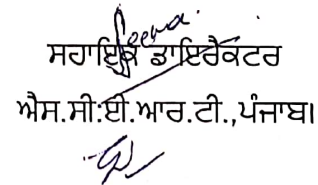 ਸਹਾਇਕ ਡਾਇਰੈਕਟਰ
ਐਸ.ਸੀ.ਈ.ਆਰ.ਟੀ.,ਪੰਜਾਬ।